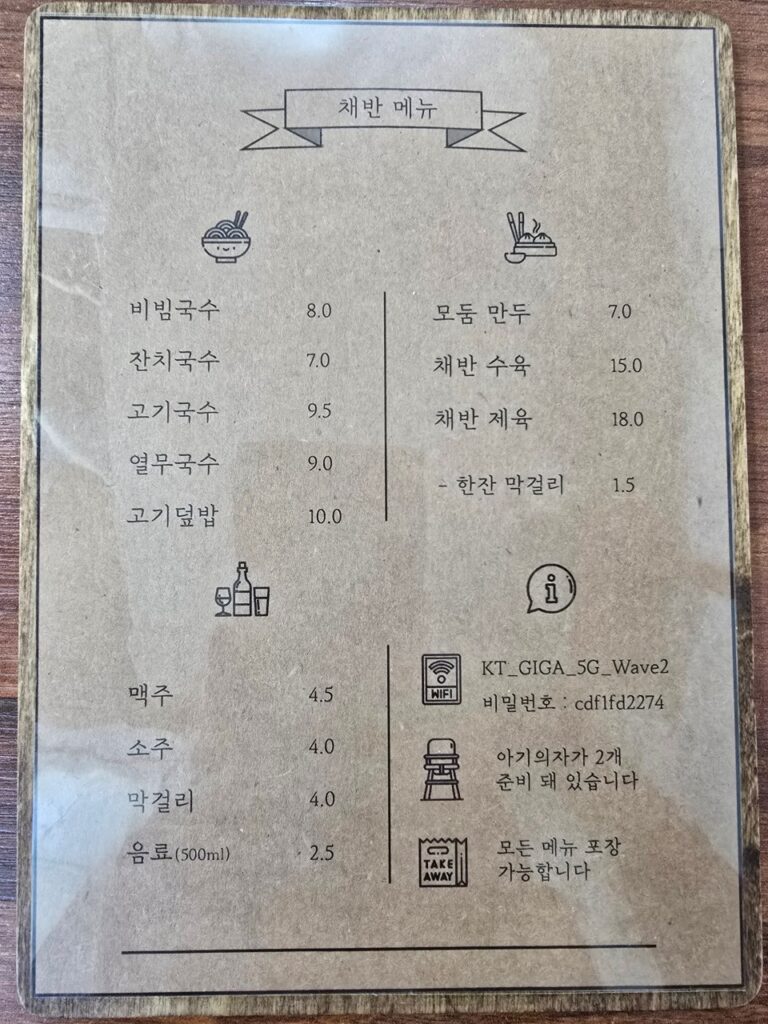 채반 메뉴
비빔국수 8.0
잔치국수 7.0
고기국수 9.5
열무국수 9.0
고기덮밥 10.0
모둠 만두 7.0
채반 수육 15.0
채반 제육 18.0
- 한잔 막걸리 1.5
맥주 4.5
소주 4.0
막걸리 4.0
음료(500ml) 2.5
WIFI
KT_GIGA_5G_Wave2
비밀번호 : cdf1fd2274
아기의자가 2개
준비 돼 있습니다
TAKE
AWAY
모든 메뉴 포장
가능합니다